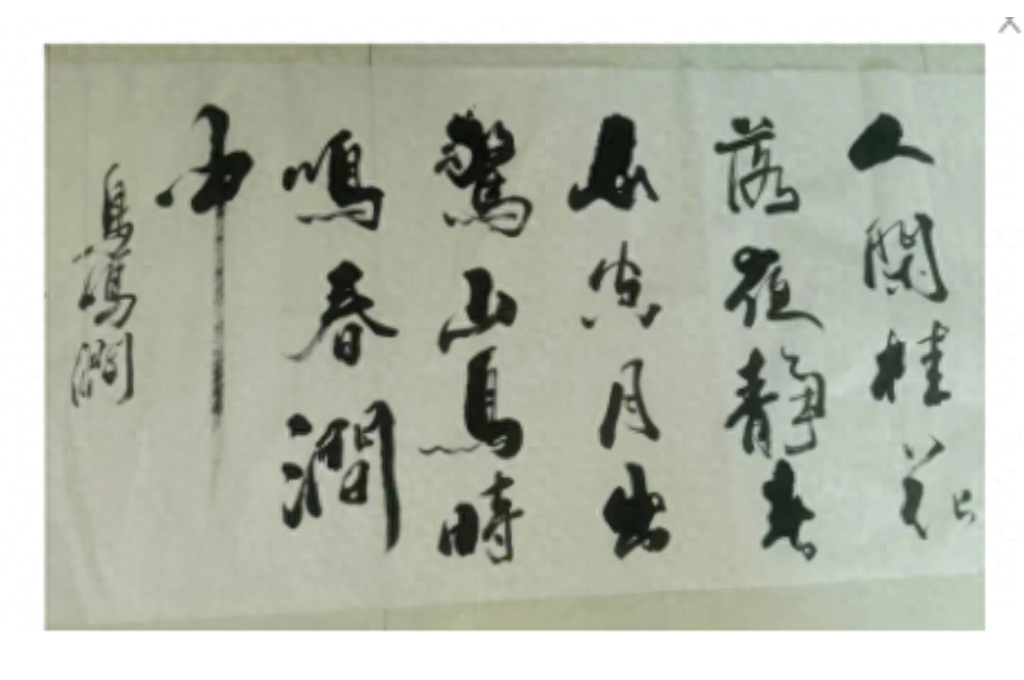 人閑桂花
落夜靜春
山空月出
驚山鳥時
鳴春澗
中
鳥鳴澗